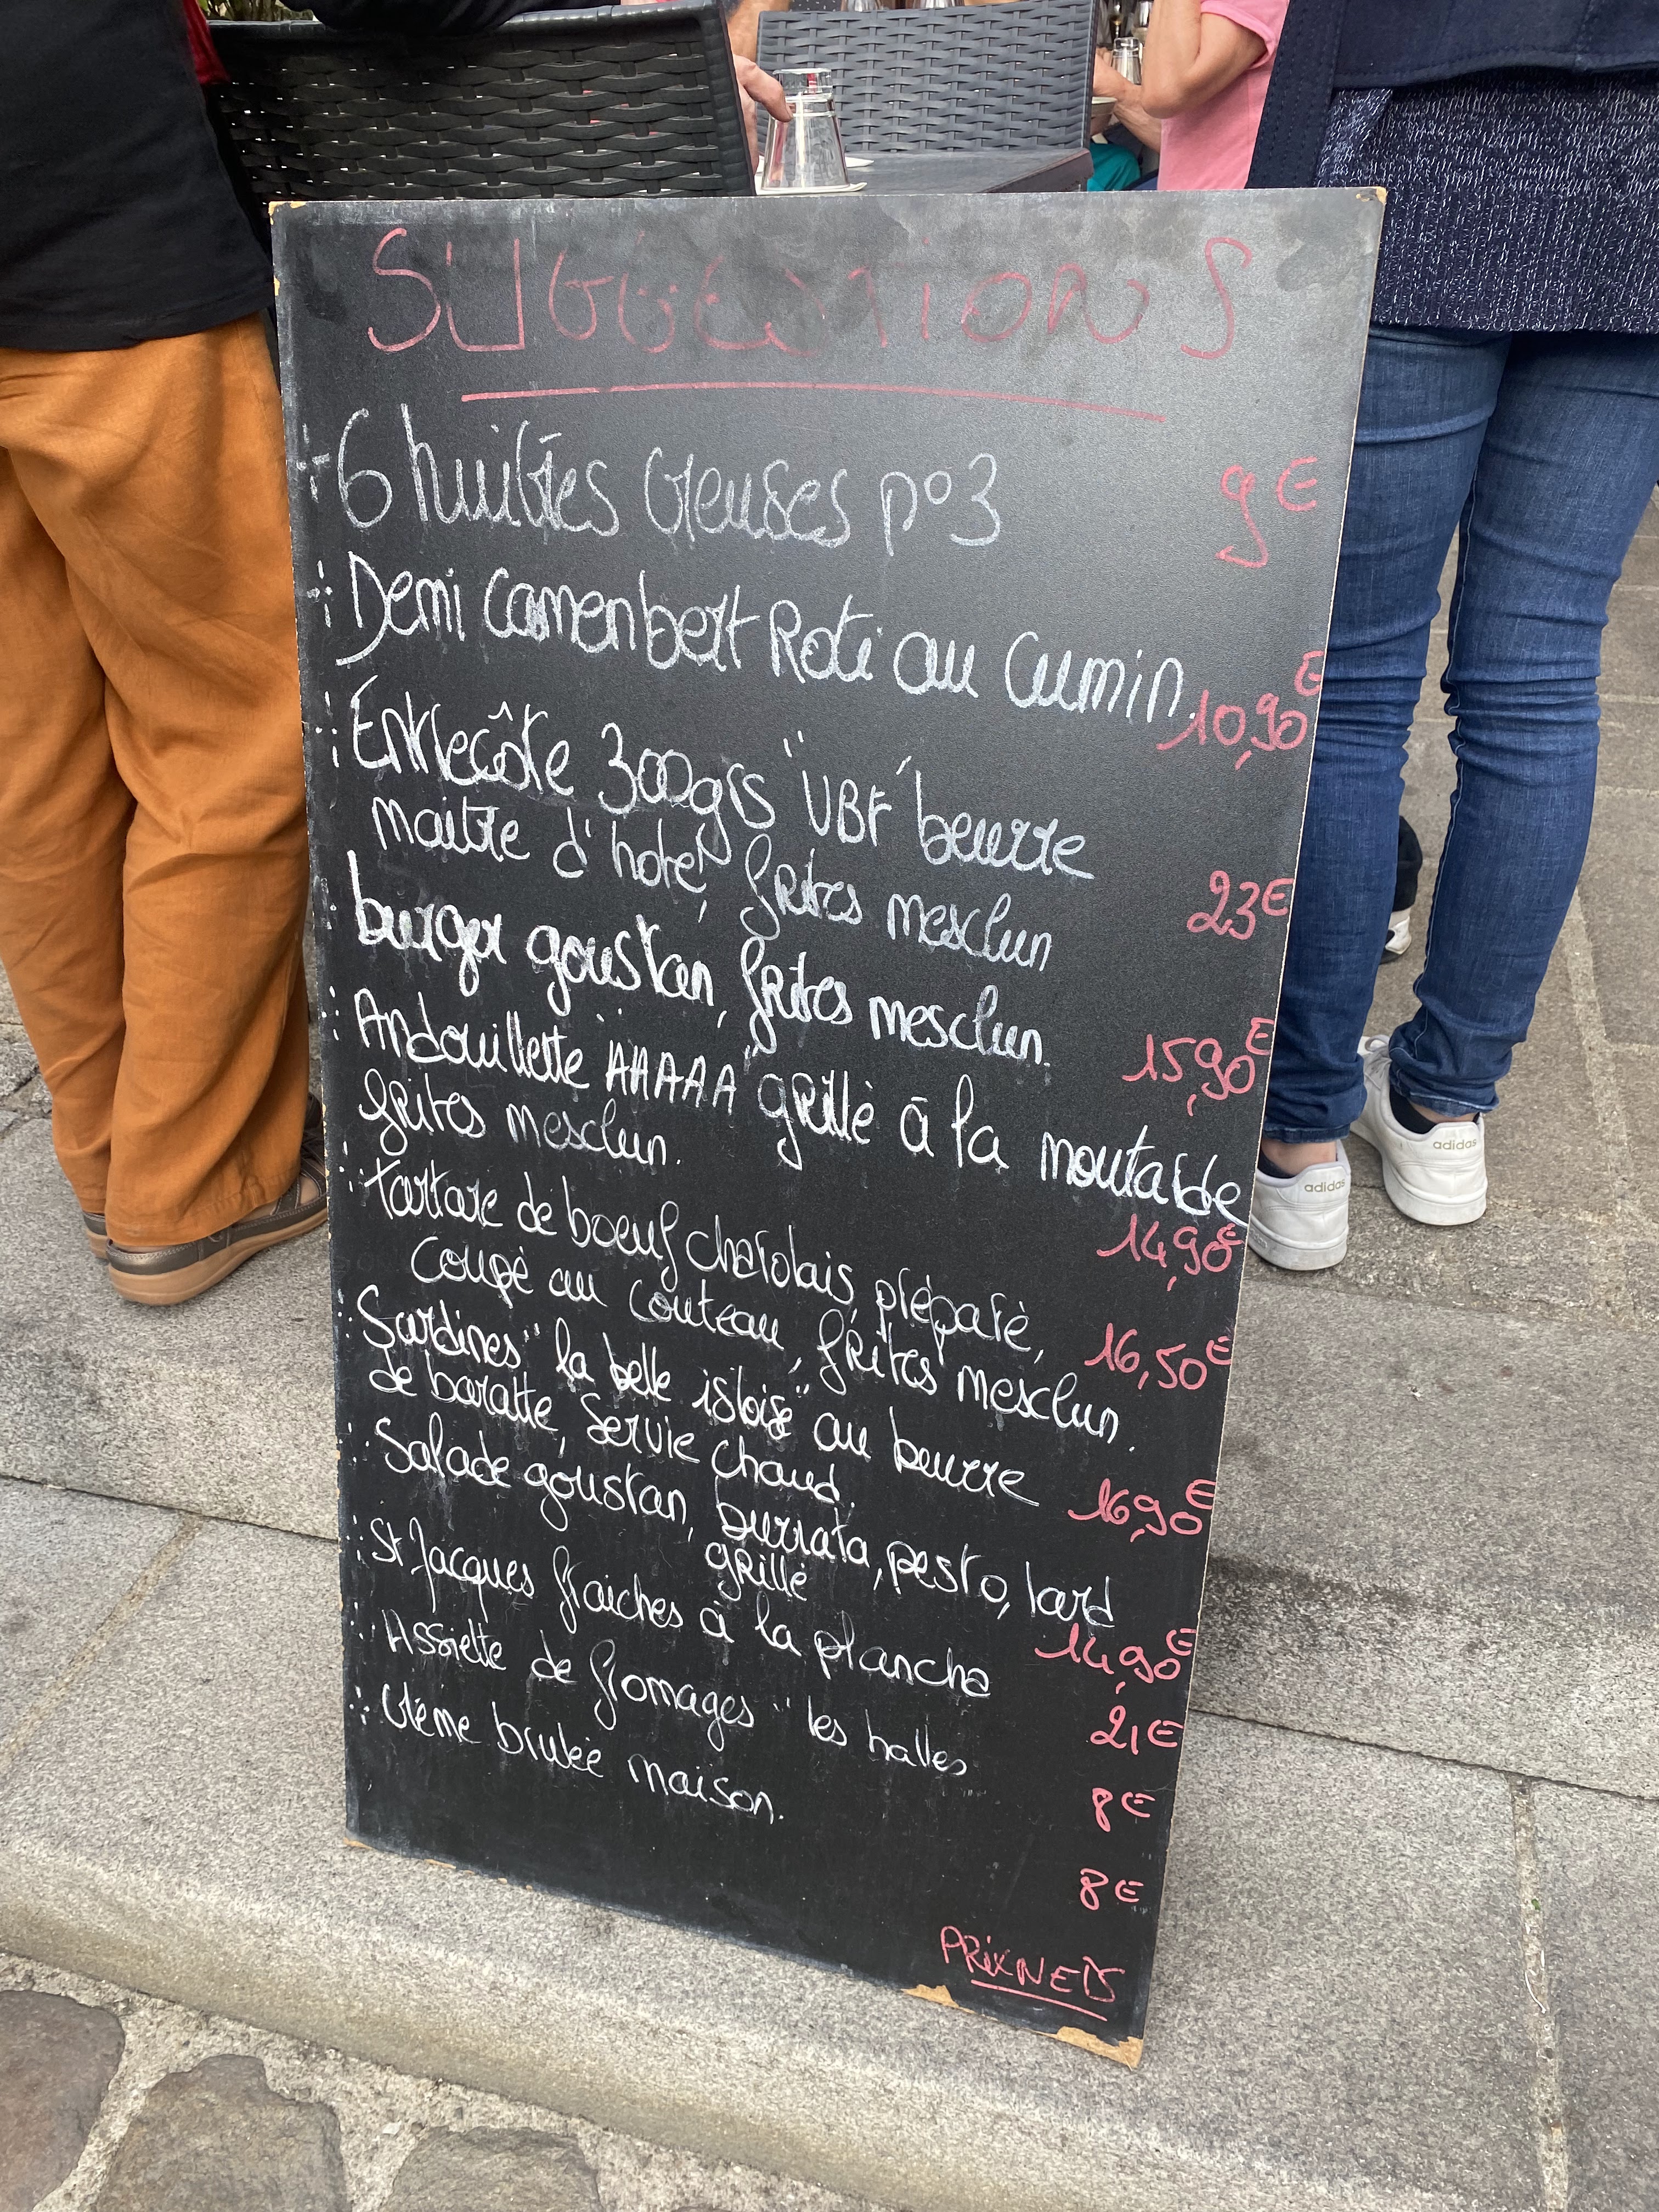 SUGGESTIONS
6 huîtres creuses n°3 9€
Demi Camenbert Roti au Cumin. 10,90€
Entrecôte 300grs "VBF" beurre
maitre d'hotel, frites mesclun 23€
burger goustan, frites mesclun. 15,90€
Andouillette "AAAAA" grillé à la moutarde
frites mesclun. 14,90€
tartare de boeuf charolais, préparé,
Coupé au Couteau, frites mesclun. 16,50€
Sardines "la belle isloise" au beurre
de baratte, servie chaud. 16,90€
Salade goustan, burrata, pesto, lard
grillé 14,90€
St Jacques fraiches à la plancha 21€
Assiette de fromages "les halles 8€
Crème brulée maison. 8€
PRIX NETS
adidas
adidas